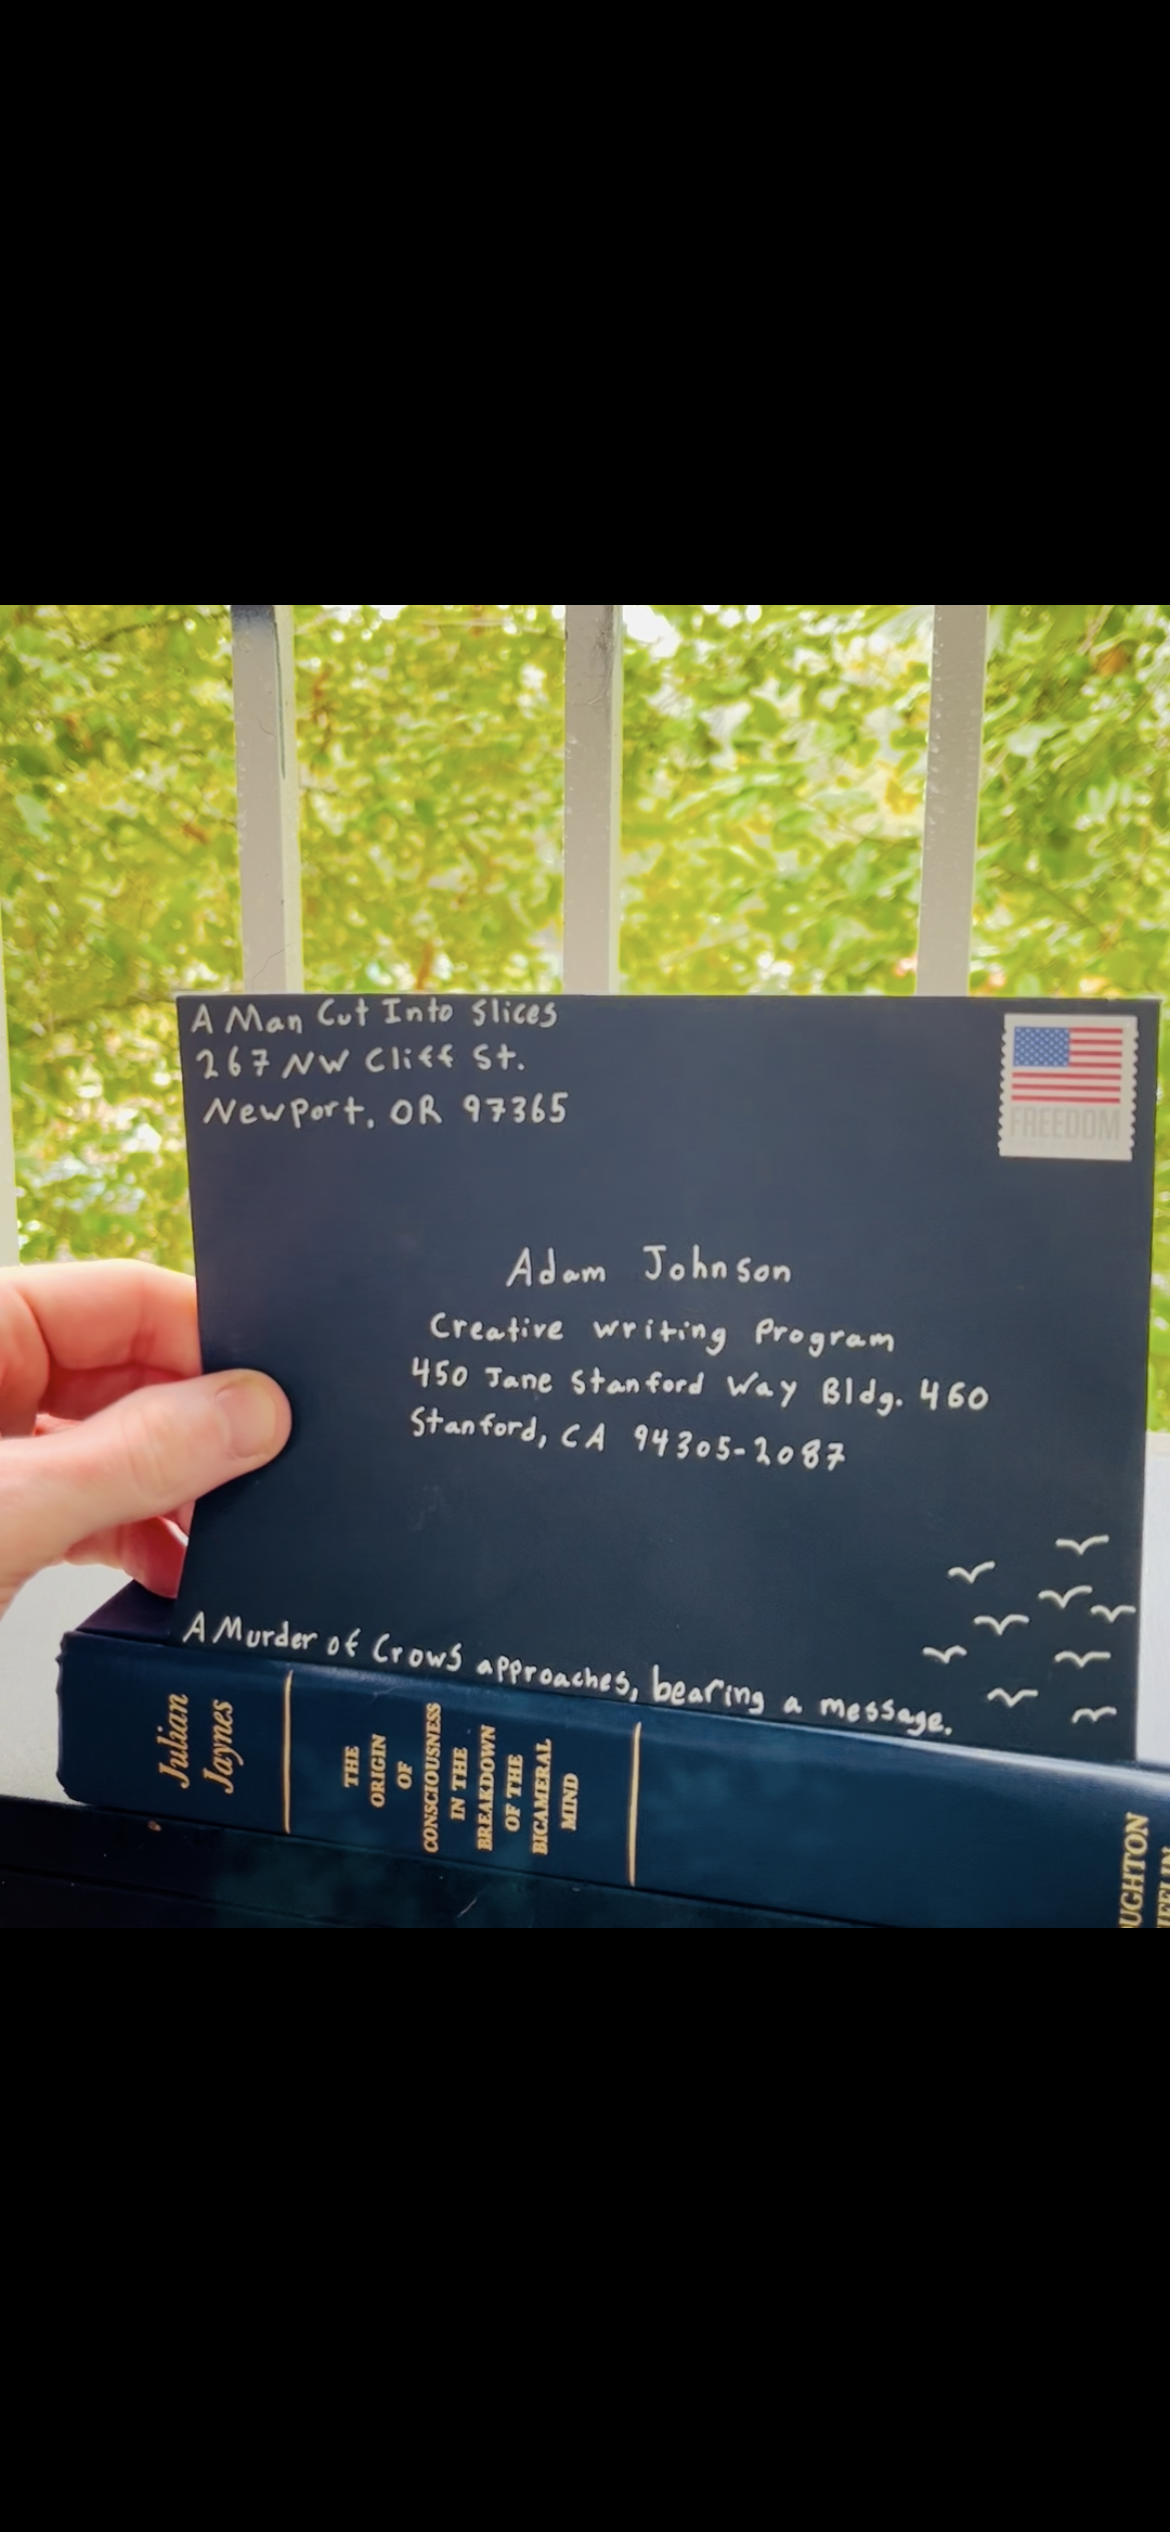 A Man Cut Into Slices
267 NW Cliff St.
Newport, OR 97365
FREEDOM
Adam Johnson
Creative Writing Program
450 Jane Stanford Way Bldg. 460
Stanford, CA 94305-2087
A Murder of Crows approaches, bearing a message.
Julian
Jaynes
THE
ORIGIN
OF
CONSCIOUSNESS
IN THE
BREAKDOWN
OF THE
BICAMERAL
MIND
UGHTON